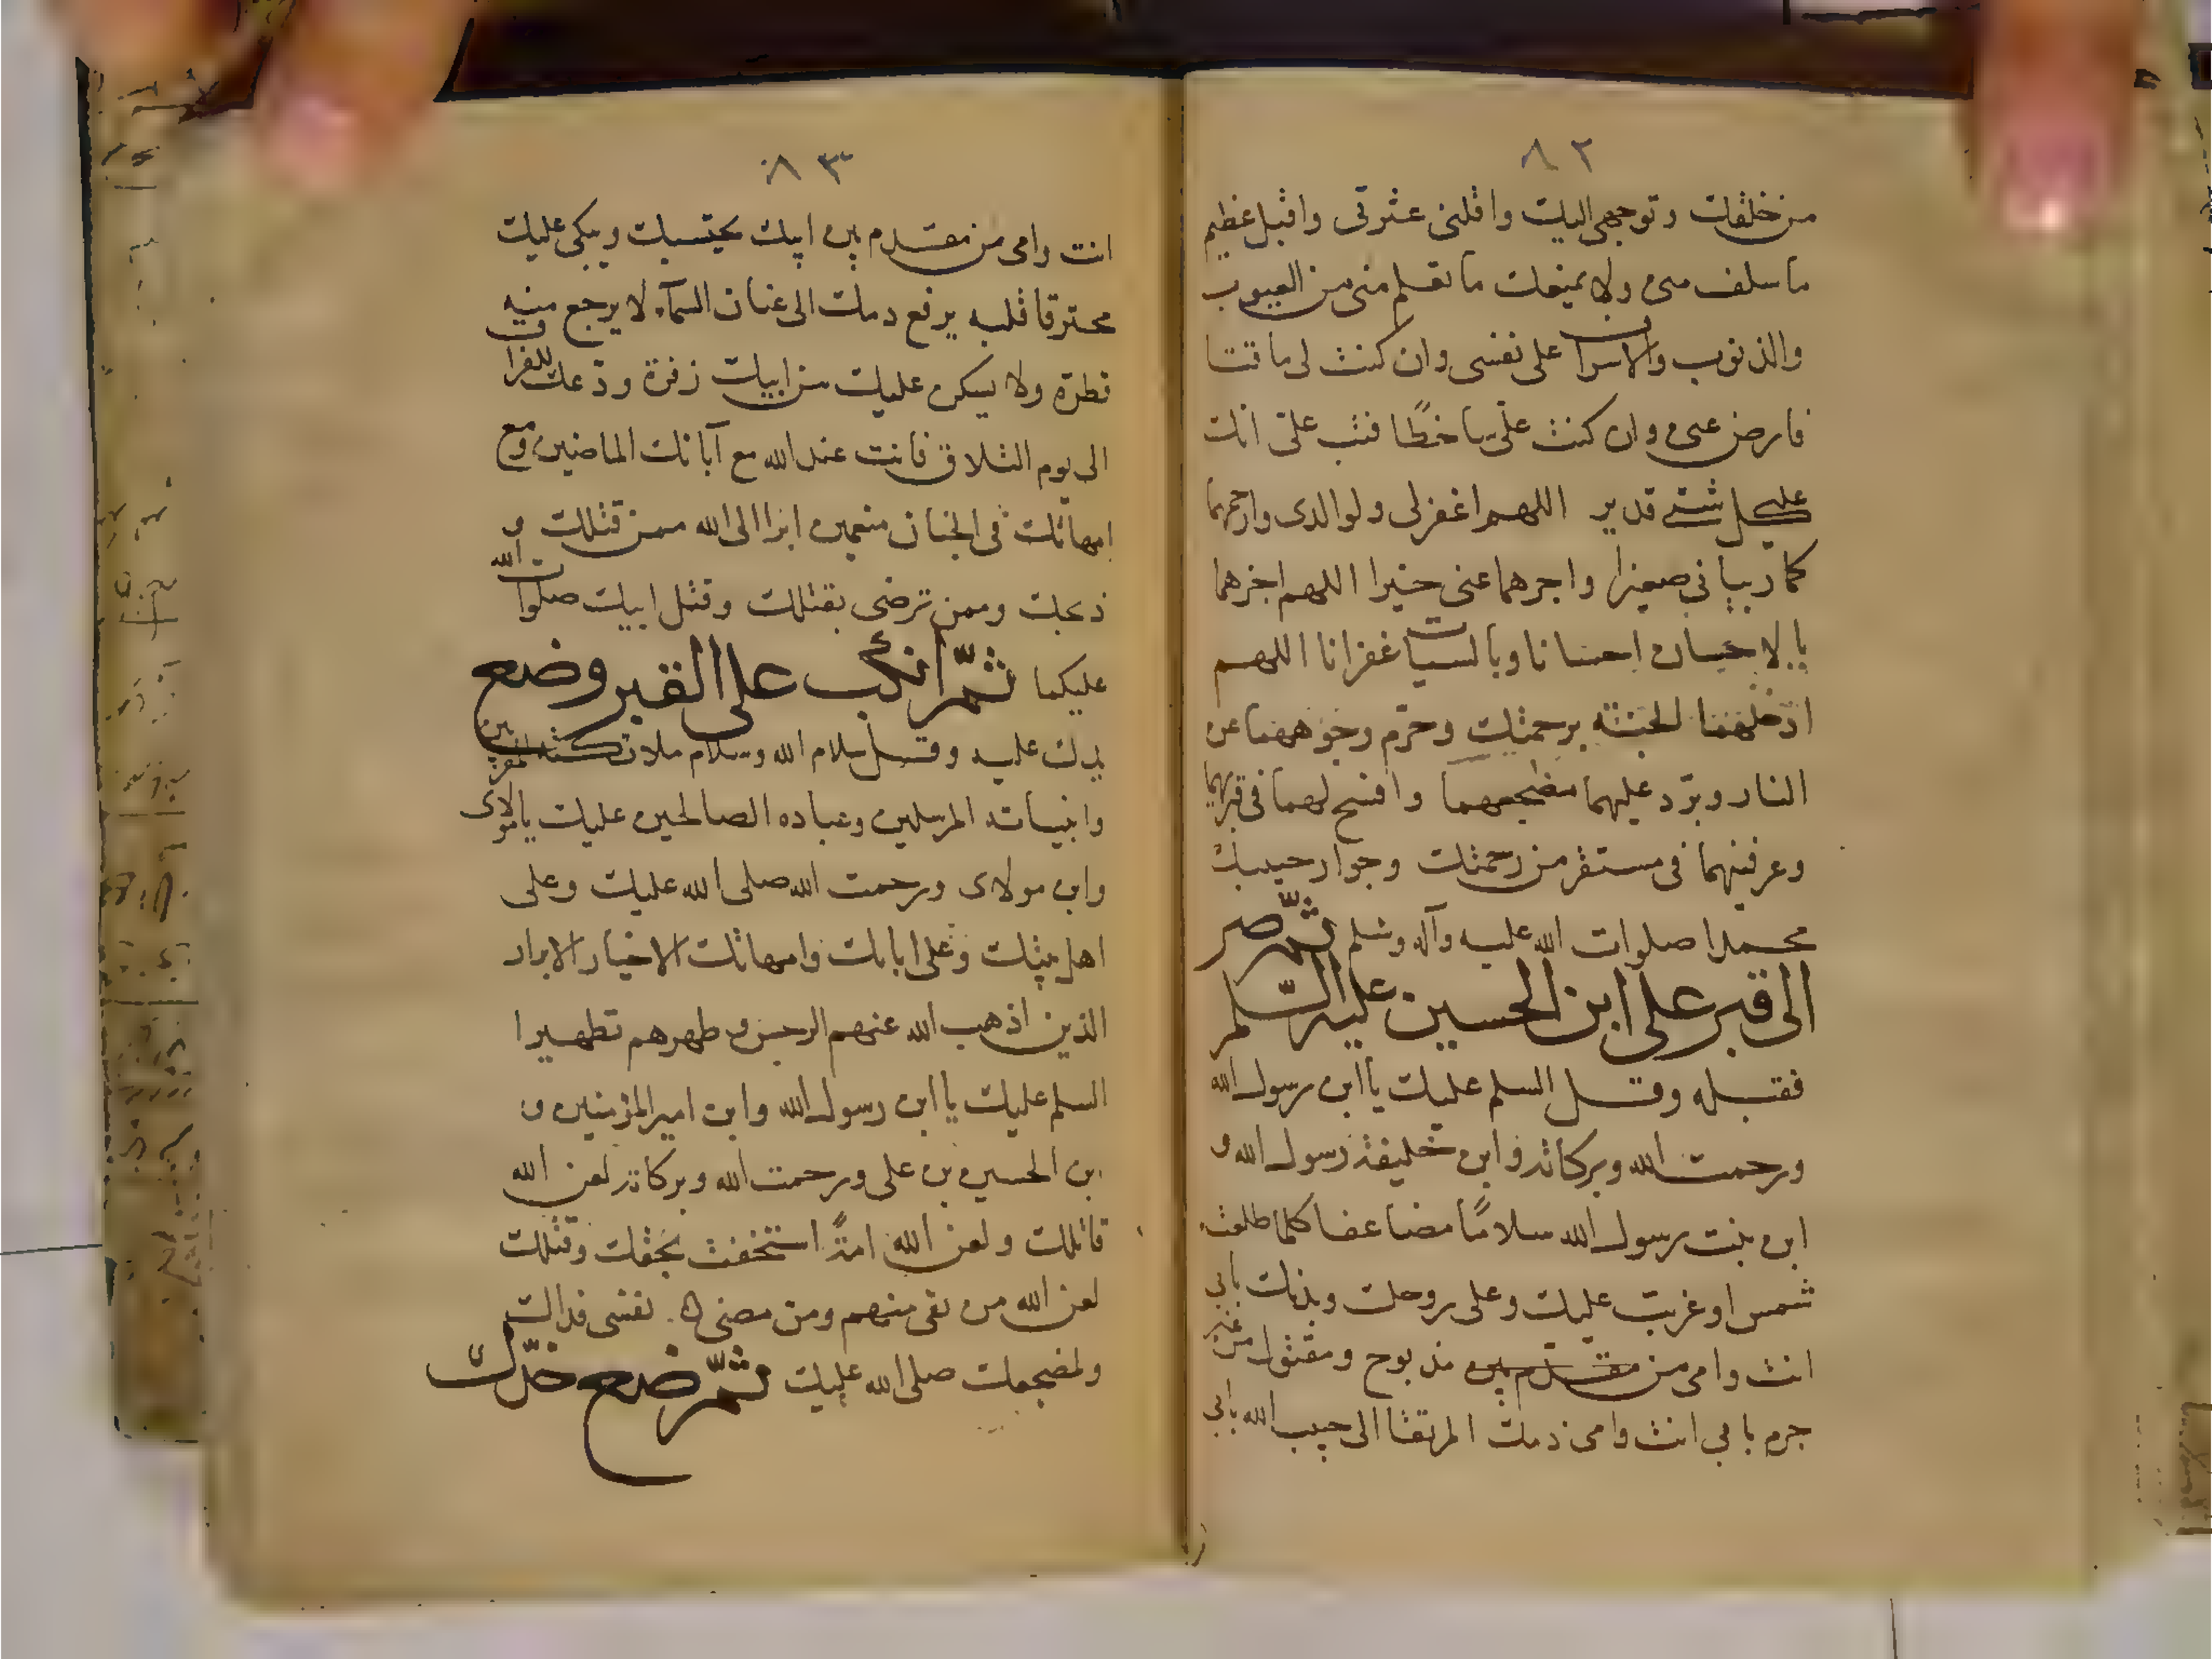 ٨٢
من خلقك وتوجهى اليك واقلنى عثرتى واقبل عظيم
ما سلف منى ولا يمنعك ما تعلم منى من العيوب
والذنوب والاسراف على نفسى وان كنت لى ماقتا
فارض عنى وان كنت على ساخطًا فتب على انك
على كل شئ قدير اللهم اغفر لى ولوالدى وارحمهما
كما ربيانى صغيرا واجزهما عنى خيرا اللهم اجزهما
بالاحسان احسانا وبالسيات غفرانا اللهم
ادخلهما الجنته برحمتك وحرّم وجوههما عن
النار وبرّد عليهما مضجعهما وافسح لهما فى قبريهما
وعرفنيهما فى مستقر من رحمتك وجوار حبيبك
محمدا صلوات الله عليه وآله وسلم ثمّ صر
الى قبر على ابن الحسين عليه السّلم
فقبله وقل السلم عليك يا ابن رسول الله
ورحمت الله وبركاته وابن خليفة رسول الله و
ابن بنت رسول الله سلامًا مضاعفا كلما طلعت
شمس او غربت عليك وعلى روحك وبدنك بابى
انت وامى من مذبوح ومقتول من غير
جرم بابى انت وامى دمك المرتقا الى حبيب الله بابى
٨٣
انت وامى من مقدم بين ابيك يحتسبك ويبكى عليك
محترقا قلبه يرفع دمك الى عنان السمآء لا يرجع منه
قطرة ولا يسكن عليك من ابيك زفرة ودّعك للفراق
الى يوم التلاق فانت عند الله مع آبائك الماضين ومع
امهاتك فى الجنان منعمين ابرا الى الله ممن قتلك و
ذبحك وممن ترضى بقتلك وقتل ابيك صلوات الله
عليكما ثمّ انكب على القبر وضع
يدك عليه وقل سلام الله وسلام ملائكته المقربين
وانبيائه المرسلين وعباده الصالحين عليك يا مولاى
وابن مولاى ورحمت الله صلى الله عليك وعلى
اهل بيتك وعلى ابائك وامهاتك الاخيار الابرار
الذين اذهب الله عنهم الرجس وطهرهم تطهيرا
السلم عليك يا ابن رسول الله وابن امير المؤمنين و
ابن الحسين بن على ورحمت الله وبركاته لعن الله
قاتلك ولعن الله امةً استخفت بحقك وقتلك
لعن الله من بقى منهم ومن مضى نفسى فدا لك
ولمضجعك صلى الله عليك ثمّ ضع خدّك